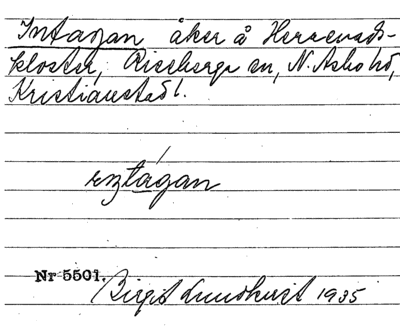 Intagan åker å Herrevads-
kloster, Riseberga sn, N. Asbo hd,
Kristianstad l.
Nr 5501. Birgit Lundkvist 1935